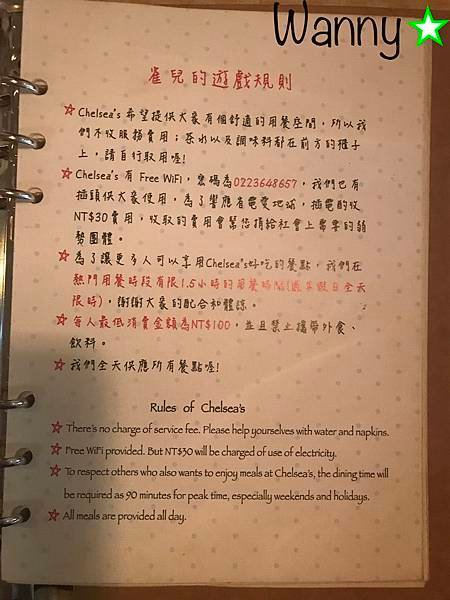 Wanny
雀兒的遊戲規則
Chelsea's 希望提供大家有個舒適的用餐空間，所以我
們不收服務費用；茶水以及調味料都在前方的櫃子
上，請自行取用喔!
Chelsea's 有 Free WiFi，密碼為0223648657，我們也有
插頭供大家使用，為了響應省電愛地球，插電酌收
NT$30費用，收取的費用會幫您捐給社會上需要的弱
勢團體。
為了讓更多人可以享用Chelsea's好吃的餐點，我們在
熱門用餐時段有限1.5小時的用餐時間(週末假日全天
限時)，謝謝大家的配合和體諒。
每人最低消費金額為NT$100，並且禁止攜帶外食、
飲料。
我們全天供應所有餐點喔!
Rules of Chelsea's
There's no charge of service fee. Please help yourselves with water and napkins.
Free WiFi provided. But NT$30 will be charged of use of electricity.
To respect others who also wants to enjoy meals at Chelsea's, the dining time will
be required as 90 minutes for peak time, especially weekends and holidays.
All meals are provided all day.